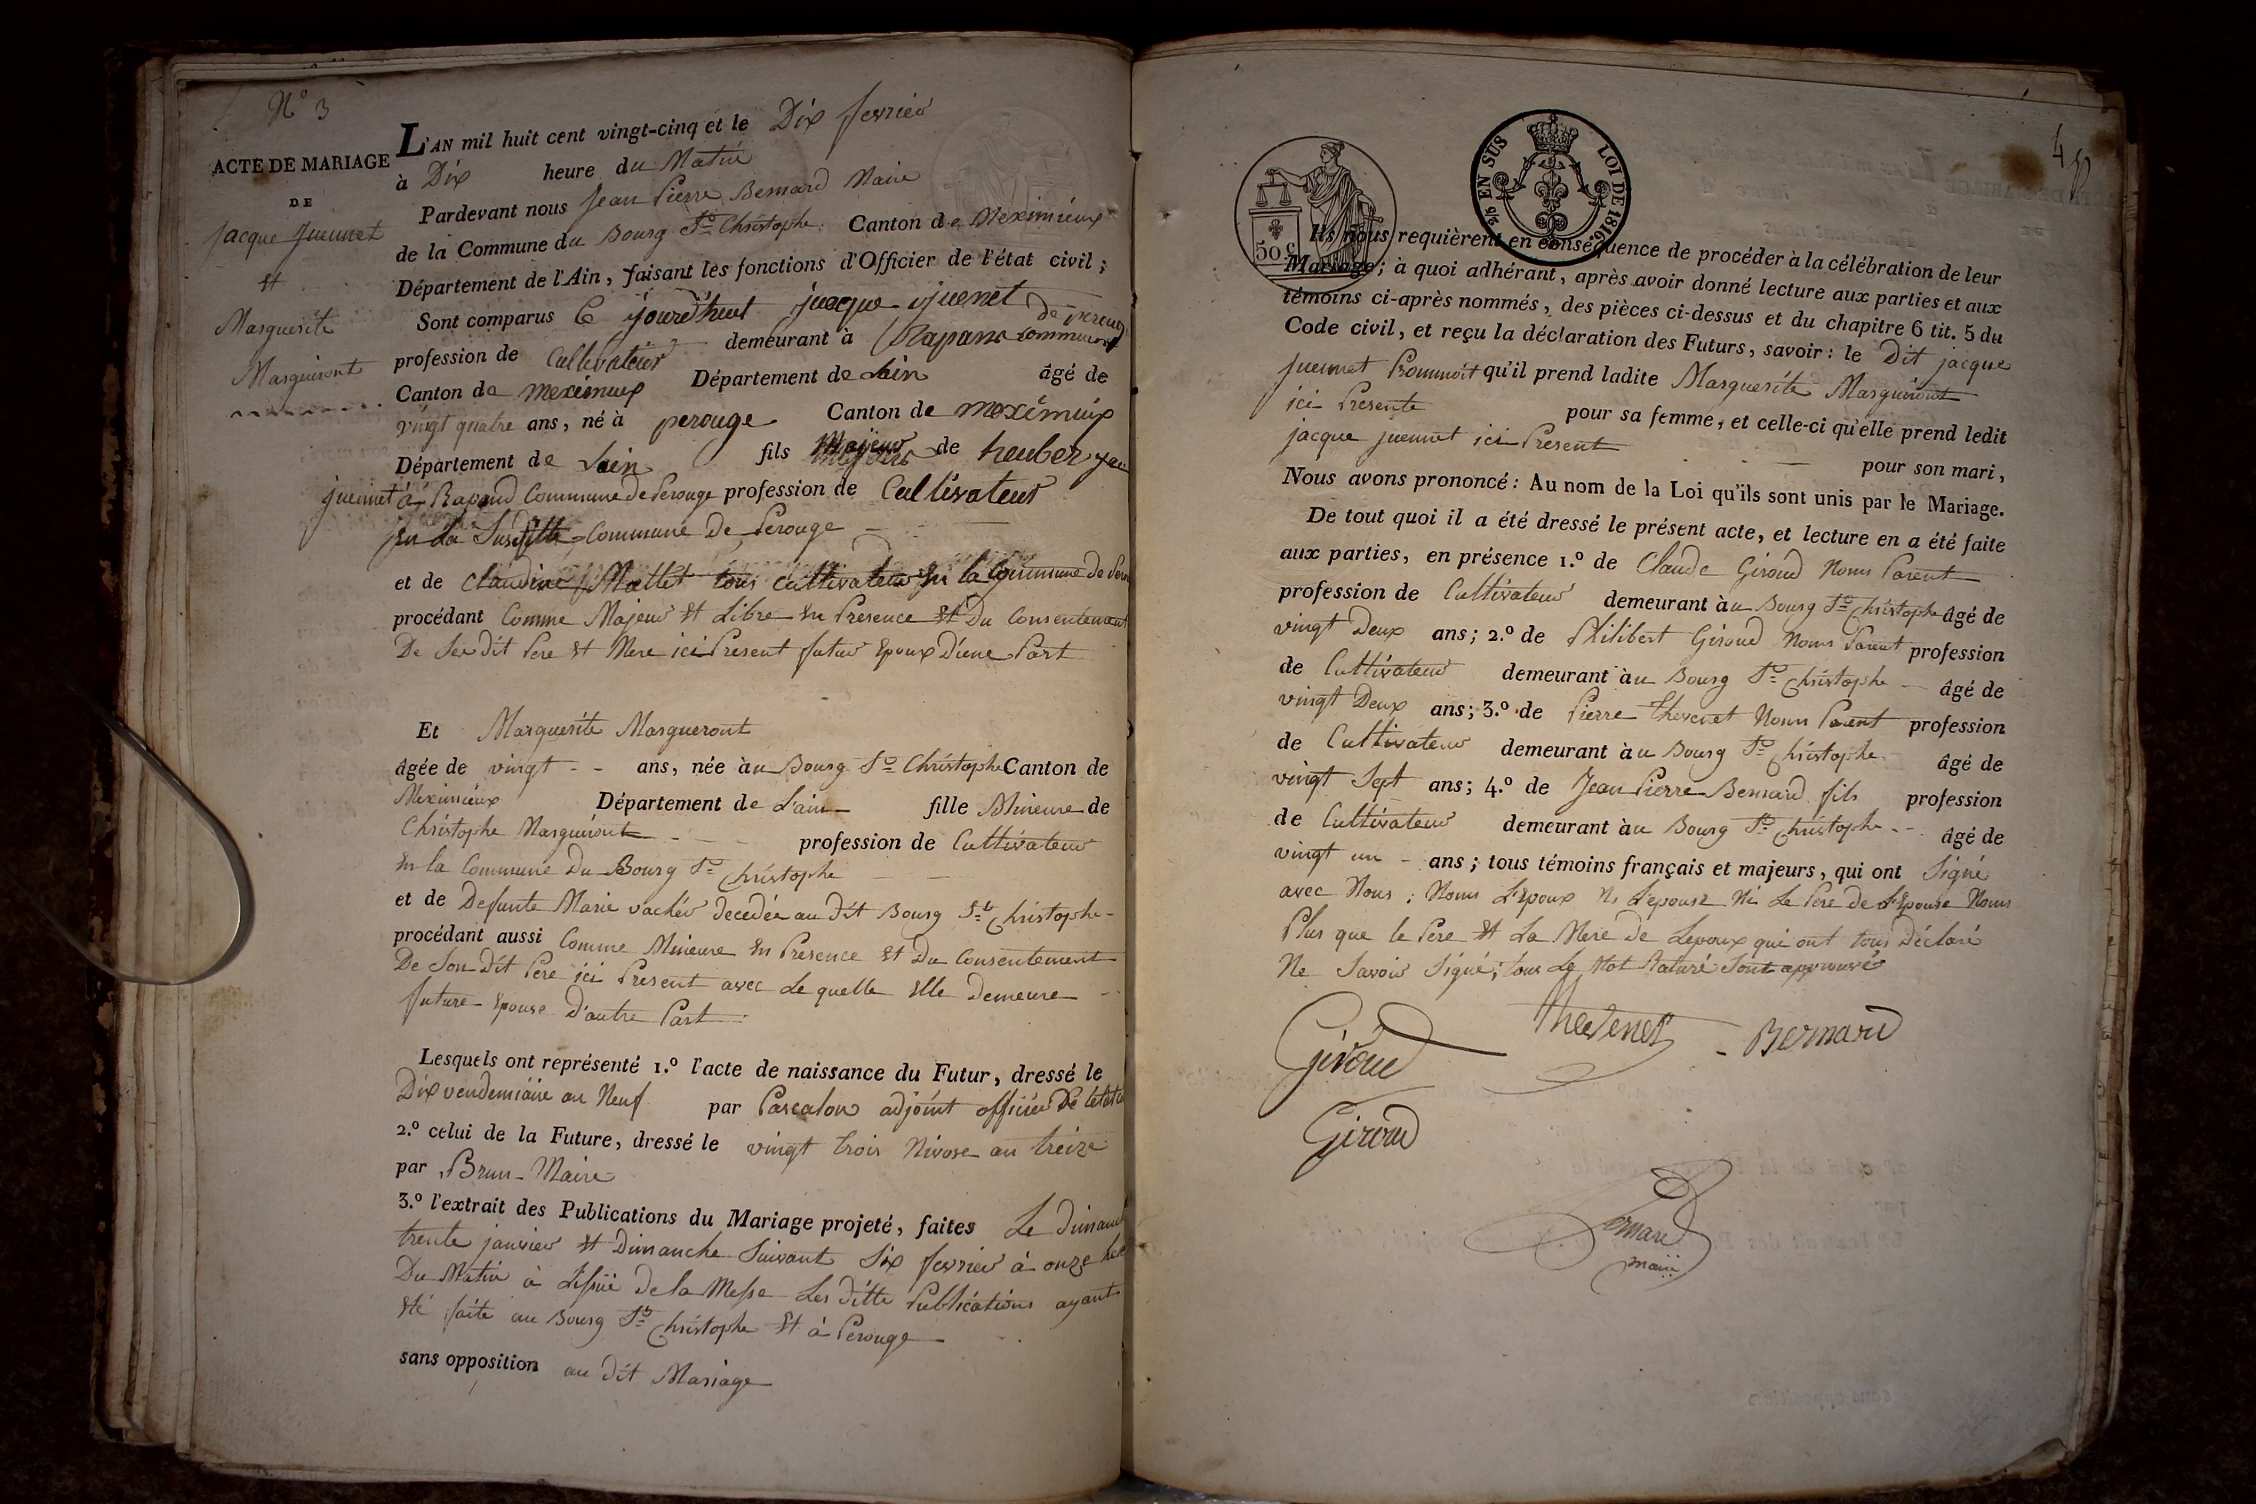 N.° 3
ACTE DE MARIAGE
DE
Jacque Juennet
Et
Marguerite
Marguiront
L'AN mil huit cent vingt-cinq et le Dix fevrier
à Dix heure du Matin
Pardevant nous Jean Pierre Bernard Maire
de la Commune du Bourg St Christophe Canton de Meximieux
Département de l'Ain, faisant les fonctions d'Officier de l'état civil;
Sont comparus Ce jourd'huit jacque juenet
profession de Cultivateur demeurant à Rapans commune de perouge
Canton de meximiux Département de Lain âgé de
vingt quatre ans, né à perouge Canton de meximiux
Département de Lain fils Majeur de heuber
juennet à Rapand Commune de Perouge profession de Cultivateur
En La Susditte Commune de Perouge
et de Claudine Mallet tous cultivateur En la Commune de
procédant Comme Majeur Et Libre En Presence Et Du Consentement
De Ses dit Pere Et Mere ici Present futur Epoux D'une Part
Et Marguerite Margueront
âgée de vingt - - ans, née àu Bourg St Christophe Canton de
Meximieux Département de L'ain fille Mineure de
Christophe Marguiront profession de Cultivateur
En la Commune Du Bourg St Christophe
et de Defunte Marie vachér decedée au dit Bourg St Christophe
procédant aussi Comme Mineure En Presence Et Du Consentement
De Son Dit Pere ici Present avec Le quelle Elle Demeure
future Epouse D'autre Part
Lesquels ont représenté 1.° l'acte de naissance du Futur, dressé le
Dix vendemiaire an Neuf par Pascalon adjoint officier De
2.° celui de la Future, dressé le vingt trois Nivose an treize
par Brun Maire
3.° l'extrait des Publications du Mariage projeté, faites Le
trente janvier Et Dimanche Suivant Six fevrier à onze
Du Matin à L'issuë de la Messe Les ditte Publications ayant
Eté faite au Bourg St Christophe Et à Perouge
sans opposition au dit Mariage
4
50 C.
2/5 EN SUS LOI DE 1816.
Ils nous requièrent en conséquence de procéder à la célébration de leur
Mariage; à quoi adhérant, après avoir donné lecture aux parties et aux
témoins ci-après nommés, des pièces ci-dessus et du chapitre 6 tit. 5 du
Code civil, et reçu la déclaration des Futurs, savoir: le Dit jacque
juennet qu'il prend ladite Marguerite Marguiront
ici Presente pour sa femme, et celle-ci qu'elle prend ledit
jacque juennet ici Present pour son mari,
Nous avons prononcé: Au nom de la Loi qu'ils sont unis par le Mariage.
De tout quoi il a été dressé le présent acte, et lecture en a été faite
aux parties, en présence 1.° de Claude Giroud Nomn Parent
profession de Cultivateur demeurant àu Bourg St Christophe âgé de
vingt Deux ans; 2.° de Philibert Giroud Nomn Parent profession
de Cultivateur demeurant àu Bourg St Christophe âgé de
vingt Deux ans; 3.° de Pierre Thevenet Nomn Parent profession
de Cultivateur demeurant àu Bourg St Christophe âgé de
vingt Sept ans; 4.° de Jean Pierre Bernard fils profession
de Cultivateur demeurant àu Bourg St Christophe âgé de
vingt un - ans; tous témoins français et majeurs, qui ont Signé
avec Nous; Nomn L'Epoux Ni L'epouse Ni Le Pere de L'Epouse Nomn
Plus que le Pere Et La Mere de Lepoux qui ont tous Déclaré
Ne Savoir Signé; tous Le Mot Raturé Sont approuvés
Giroud Thevenet Bernard
Giroud
Bernard
maire